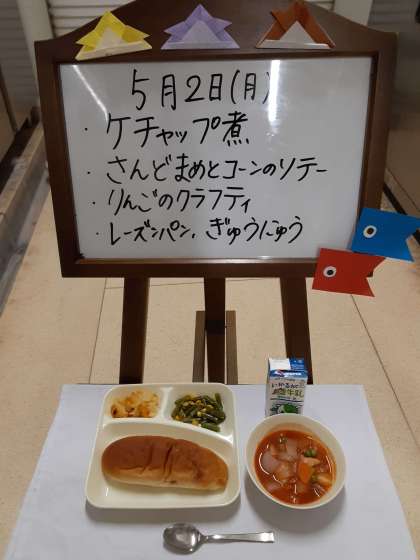 5月2日(月)
・ケチャップ煮
・さんどまめとコーンのソテー
・りんごのクラフティ
・レーズンパン、ぎゅうにゅう
いかるが
牛乳